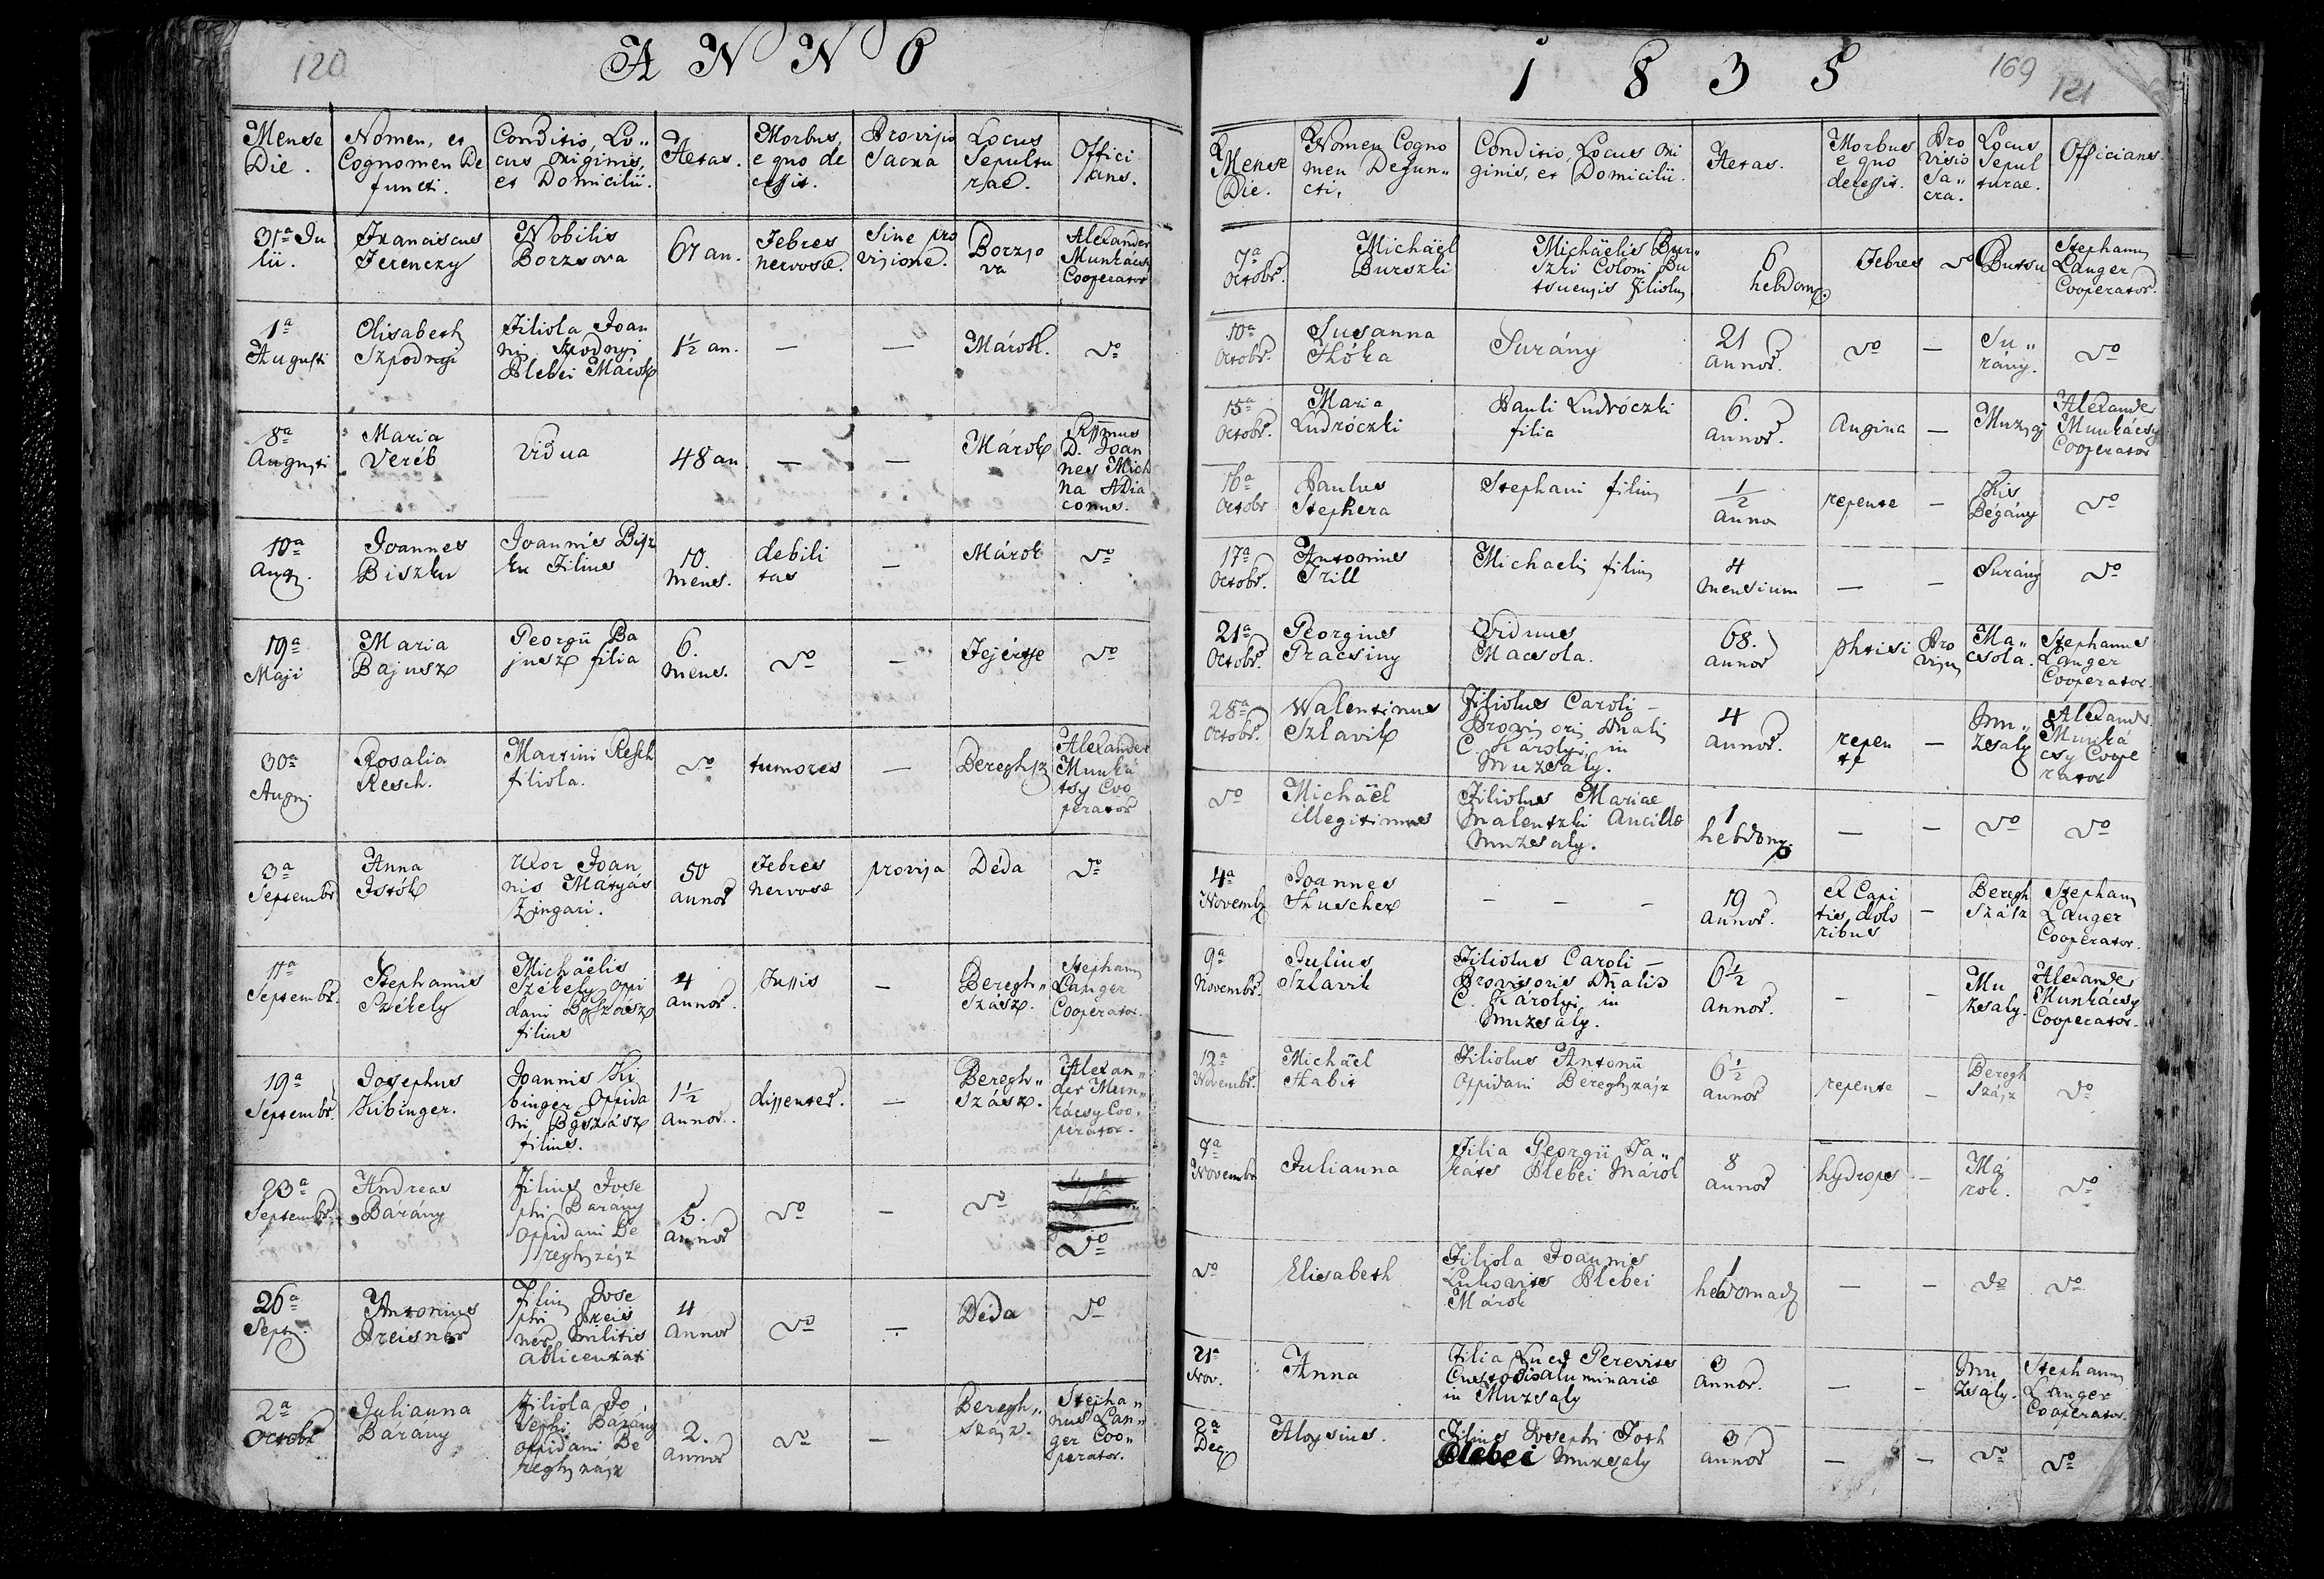 120
ANNO
Mense Die.
Nomen, et Cognomen Defuncti.
Conditio, Lo„cus originis, et Domicilii.
Aetas.
Morbus, e quo decessit.
Provisio Sacra
Locus Sepulturae.
Officians.
31a Julii.
Franciscus Ferenczy
Nobilis Borzsova
67 an.
Febres nervosae.
Sine provisione.
Borzsova
Alexander Munkácsy Cooperator
1a Augusti
Elisabeth Szpodnyi
Filiola Joannis Szpodnyi Plebei Márok
1½ an.
—
—
Márok.
Do
8a Augusti
Maria Veréb
Vidua
48 an
—
—
Márok
Rssmus D. Joannes Michna ADiaconus.
10a Aug.
Joannes Biszku
Joannis Biszku Filius
10. mens.
debilitas
—
Márok
Do
19a Maji
Maria Bajusz
Georgii Bajusz filia
6. mens.
Do
—
Fejértse
Do
30a Aug.
Rosalia Resch.
Martini Resch filiola.
Do
tumores
—
Bereghsz
Alexander Munkátsy Cooperator
3a Septembr
Anna Istók
Uxor Joannis Mátyás Zingari.
50 annor
Febres nervosae
provisa
Déda
Do
11a Septembr.
Stephanus Székely
Michäelis Székely oppidani Bgszász filius
4 annor.
Tussis
—
Beregh„Szász.
Stephan Langer Cooperator.
19a Septembr
Josephus Kibinger.
Joannis Kibinger Oppidani Bgszász filius.
1½ annor.
dissenter.
—
Beregh„Szász.
Alexan„der Mun„kácsy Coo„perator.
23a Septembr.
Andreas Bárány
Filius Josephi Bárány oppidani Bereghszász
5. annor
Do
—
Do
Do
26a Septr.
Antonius Preisner
Filius Josephi Preisner militis ablicentiati
4 annor
Do
—
Déda
Do
2a Octobr
Julianna Bárány
Filiola Josephi Bárány oppidani Bereghszász
2. annor
Do
—
Beregh„szász.
Stepha„nus Lan„ger Coo„perator.
1835
169
121
Mense Die.
Nomen Cognomen Defun„cti,
Conditio, Locus originis, et Domicilii.
Aetas.
Morbus e quo decessit.
Provisio Sa„cra.
Locus Sepulturae.
Officians.
7a Octobr.
Michäel Burszki
Michäelis Bur„szki Coloni Butsuensis filiolus
6 hebdom.
Febres
Do
Butsu
Stephanus Langer Cooperator.
10a Octobr.
Susanna Kóka
Surány
21 annor.
Do
—
Su„rány.
Do
15a Octobr.
Maria Ludróczki
Pauli Ludróczki filia
6. annor.
Angina
—
Muzsaj
Alexander Munkácsy Cooperator
16a Octobr
Paulus Stephera
Stephani filius
½ anno
repente
—
Kis Bégány
Do
17a Octobr.
Antonius Trill
Michaelis filius
4 mensium
—
—
Surány
Do
21a Octobr.
Georgius Gracsiny
Viduus Macsola.
68. annor
phtisi
Provisus
Ma„csola.
Stephanus Langer Cooperator.
28a Octobr.
Walentinus Szlavik
Filiolus Caroli — Provisoris Dnalis C. Károlyi in Muzsaly.
4 annor.
repente
—
Mu„zsaly
Alexander Munkácsy Cooperator
Do
Michäel illegitimus
Filiolus Mariae Malentzki Ancillae Muzsaly.
1 hebdom.
—
—
Do
Do
4a Novemb
Joannes Kuscher
— — —
19 annor.
Ex Capitis doloribus
—
Beregh Szász
Stephanus Langer Cooperator.
9a Novembr.
Julius Szlavik
Filiolus Caroli — Provisoris Dnalis C. Károlyi in Muzsaly.
6½ annor.
—
—
Muzsaly.
Alexander Munkácsy Cooperator.
12a Novembr.
Michäel Habit
Filiolus Antonii Oppidani Bereghszász
6½ annor
repente
—
Beregh Szász
Do
7a Novembr
Julianna
Filia Georgii Ta„káts Plebei Márok
8 annor
hydrops
—
Márok.
Do
Do
Elisabeth
Filiola Joannis Lukovits Plebei Márok
1 hebdomad
—
—
Do
Do
21a Nov.
Anna
Filia Lucae Perevits Custodis aluminariae in Muzsaly
3 annor.
—
—
Muzsaly.
Stephanus Langer Cooperator.
2a Dec
Aloysius.
Filius Josephi Toth Plebei Muzsaly
3 annor
—
—
Do
Do